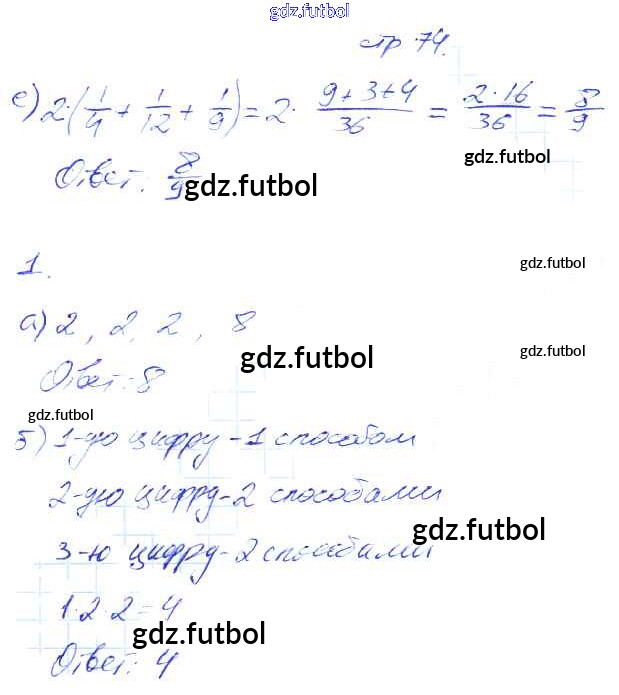 gdz.futbol
стр 74.
е) 2·(1/4 + 1/12 + 1/9) = 2 · (9+3+4)/36 = (2·16)/36 = 8/9
gdz.futbol
Ответ: 8/9
gdz.futbol
1.
gdz.futbol
а) 2, 2, 2, 8
gdz.futbol
gdz.futbol
Ответ: 8
gdz.futbol
б) 1-ую цифру - 1 способом
2-ую цифру - 2 способами
gdz.futbol
3-ю цифру - 2 способами
1·2·2=4
gdz.futbol
Ответ: 4
gdz.futbol